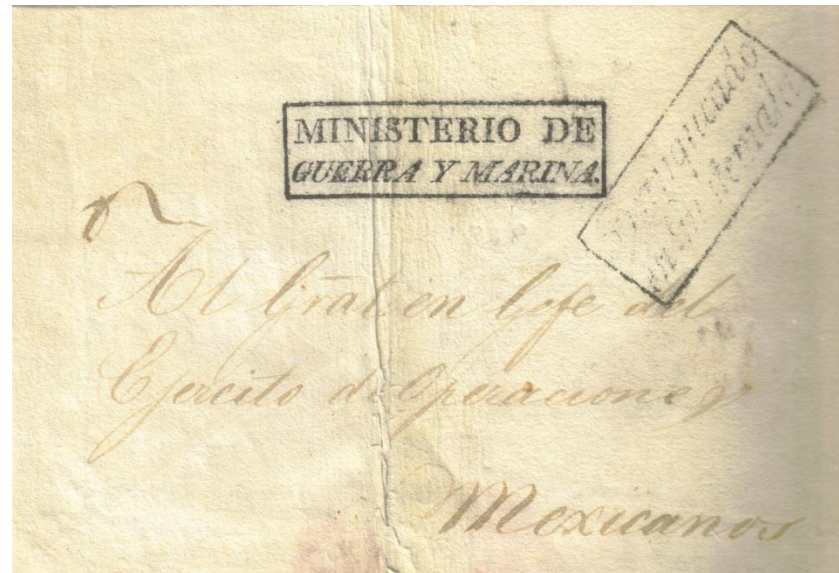 MINISTERIO DE
GUERRA Y MARINA.
Franqueado
en Guatemala
Al Gral en Gefe del
Ejercito de Operaciones
Mexicanos